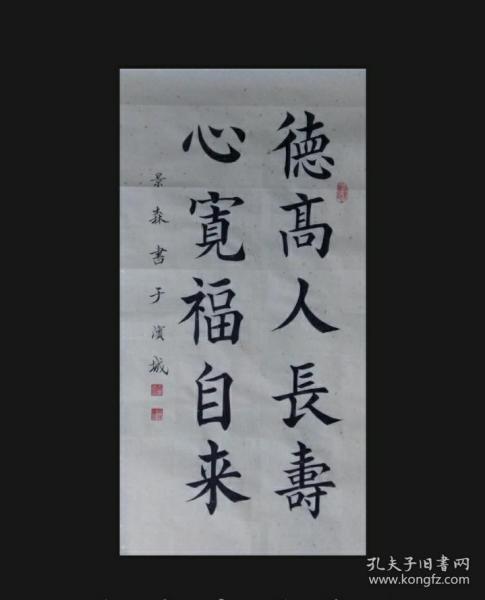 德髙人長壽
心寛福自来
景森書于濱城
孔夫子旧书网
www.kongfz.com